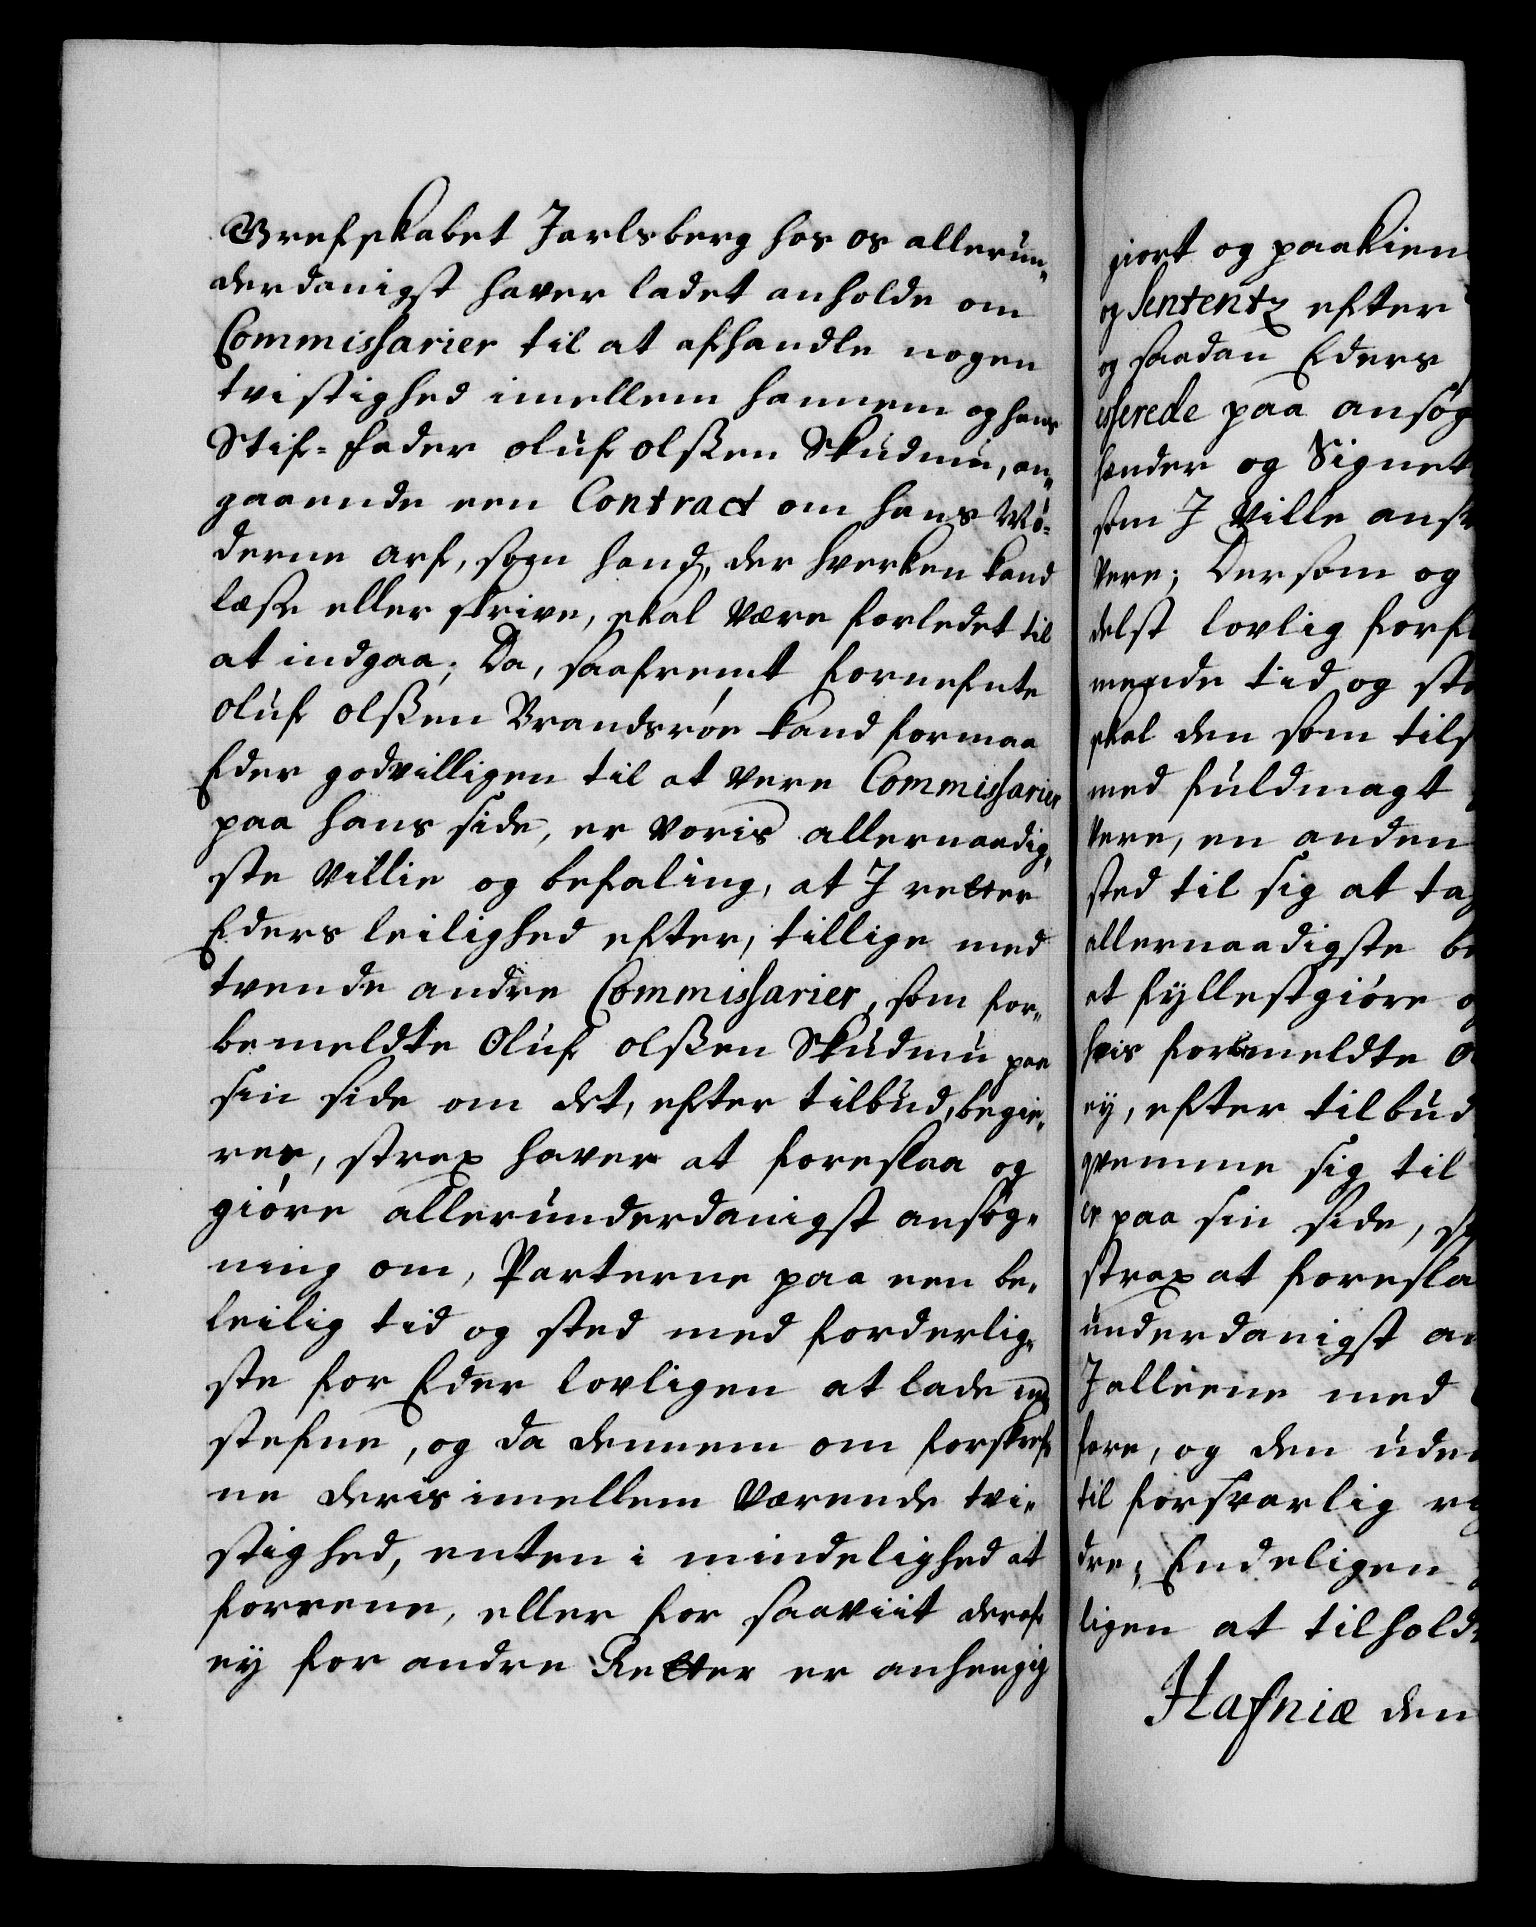 Grefskabet Jarlsberg hos os allerun-
derdanigst haver ladet anholde om
Commissarier til at afhandle nogen
tvistighed imellem hannem og hans
Stif-Fader Oluf Olssen Skudmu, an-
gaaende een Contract om hans Mö-
derne arf, som hand, der hverken kand
læse eller skrive, skal være forledet til
at indgaa; Da, saafremt fornefnte
Oluf Olssen Brandsröe kand formaa
Eder godvilligen til at vere Commissarier
paa hans side, er voris allernaadig-
ste villie og befaling, at J retter
Eders leilighed efter, tillige med
tvende andre Commissarier, som for-
bemeldte Oluf Olssen Skudmu paa
sin side om det, efter tilbud, begie-
res, strax haver at foreslaa og
giöre allerunderdanigst ansög-
ning om, Parterne paa een be-
leilig tid og sted med forderlig-
ste for Eder lovligen at lade ind
stefne, og da dennem om forskref-
ne deris imellem værende tvi-
stighed, enten i mindelighed at
foreene, eller for saaviit deraf
ey for andre Retter er anhengig
giort og paakien
og Sententz efter
og saadan Eders
isserede paa ansög
hænder og Signet
som J ville ansv
vere; Dersom og
delst lovlig forf
mende tid og ste
skal den som tils
med fuldmagt
vere, en anden
sted til sig at tag
allernaadigste be
et fyllestgiöre o
hvis forbemeldte O
ey, efter tilbud
qvemme sig til
er paa sin side, s
strax at foresla
underdanigst an
J alleene med
fore, og den uden
til forsvarlig
dre; Endeligen
ligen at tilhold
Hafniæ den